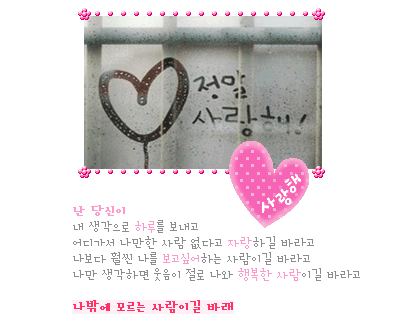 정말
사랑해!
사랑해
난 당신이
내 생각으로 하루를 보내고
어디가서 나만한 사람 없다고 자랑하길 바라고
나보다 훨씬 나를 보고싶어하는 사람이길 바라고
나만 생각하면 웃음이 절로 나와 행복한 사람이길 바라고
나밖에 모르는 사람이길 바래